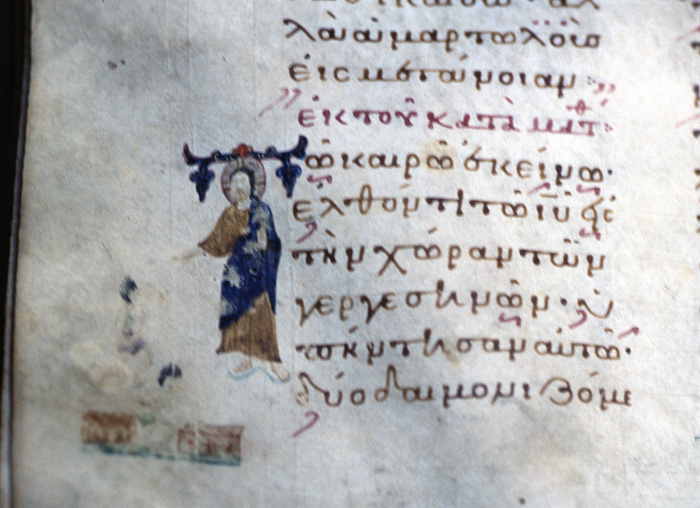 λὰ ἁμαρτωλοὺς
εἰς μετάνοιαν:
ἐκ τοῦ κατὰ ματθ:
Τῶ καιρῶ ἐκείνω·
ἐλθόντι τῶ ιῦ εἰς
τὴν χώραν τῶν
γεργεσηνῶν· ὑ
πήντησαν αὐτῶ·
δύο δαιμονιζόμε